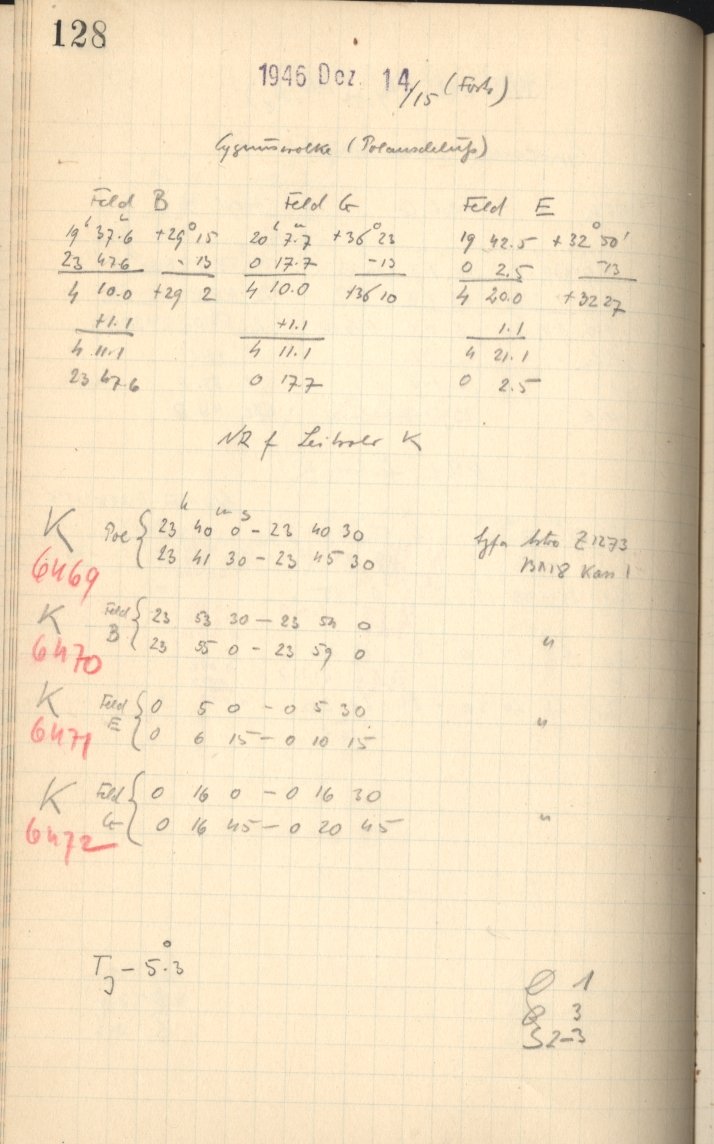 128
1946 Dez. 14/15 (Forts)
Cygnuswolke (Polanschluß)
Feld B Feld G Feld E
19h 37m.6 +29° 15 20h 7m.7 +36° 23 19 42.5 +32° 50'
23 47.6 -13 0 17.7 -13 0 2.5 -13
4 10.0 +29 2 4 10.0 +36 10 4 20.0 +32 27
+1.1 +1.1 1.1
4 11.1 4 11.1 4 21.1
23 47.6 0 17.7 0 2.5
NR f K
h m s
K Pol { 23 40 0 - 23 40 30 Agfa Astro Z1273
6469 { 23 41 30 - 23 45 30 BA18 Kass 1
K Feld { 23 53 30 - 23 54 0
6470 B { 23 55 0 - 23 59 0 "
K Feld { 0 5 0 - 0 5 30
6471 E { 0 6 15 - 0 10 15 "
K Feld { 0 16 0 - 0 16 30
6472 G { 0 16 45 - 0 20 45 "
TJ - 5°.3
1
3
2-3